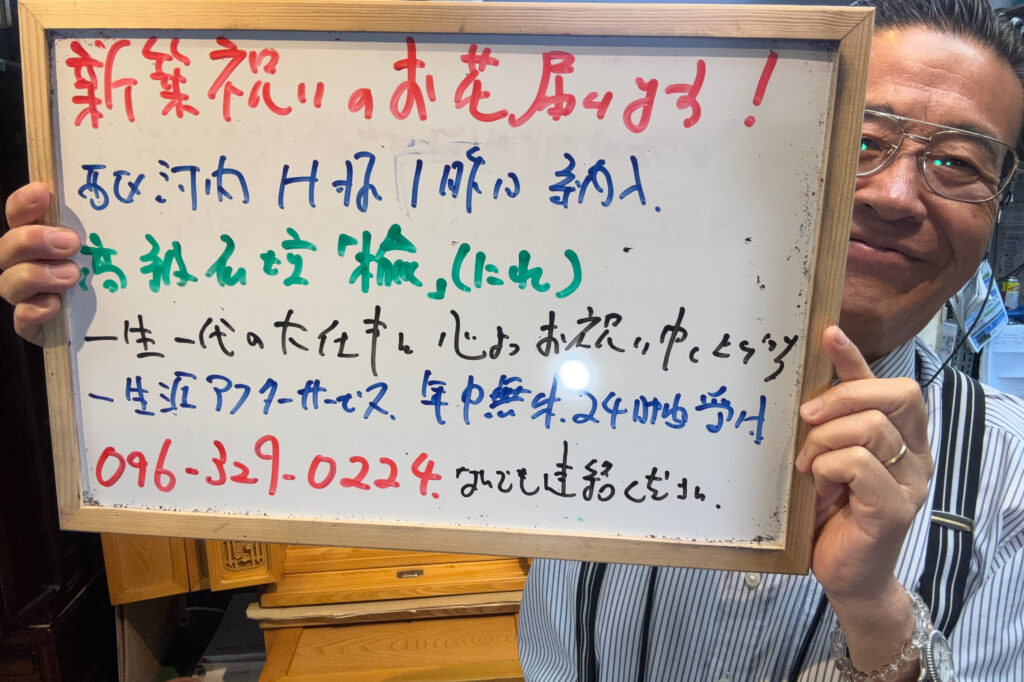 新築祝いのお花届けする!
河内 H様 1昨日 納入.
高級仏壇「楡」(にれ)
一生一代の大仕事に心よりお祝い申し上げます
一生涯アフターサービス. 年中無休. 24時間受付
096-329-0224. なんでも連絡ください.